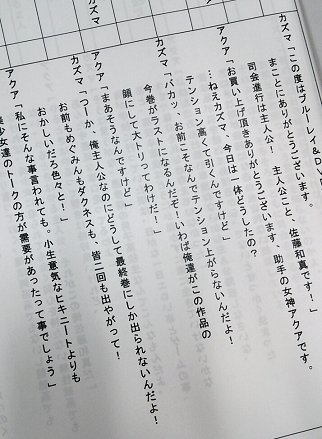 カズマ「この度はブルーレイ&DV
まことにありがとうございます。
司会進行は主人公! 主人公こと、佐藤和真です!」
アクア「お買い上げ頂きありがとうございます、助手の女神アクアです。
…ねえカズマ、今日は一体どうしたの?
テンション高くて引くんですけど」
カズマ「バカッ、お前こそなんでテンション上がらないんだよ!
今巻がラストになるんだぞ!いわば俺達がこの作品の
顔にして大トリってわけだ!」
アクア「まあそうなんですけど」
カズマ「つーか、俺主人公なのにどうして最終巻にしか出られないんだよ!
お前もめぐみんもダクネスも、皆二回も出やがって!
おかしいだろ色々と!」
アクア「私にそんな事言われても。小生意気なヒキニートよりも
美少女達のトークの方が需要があったって事でしょう」